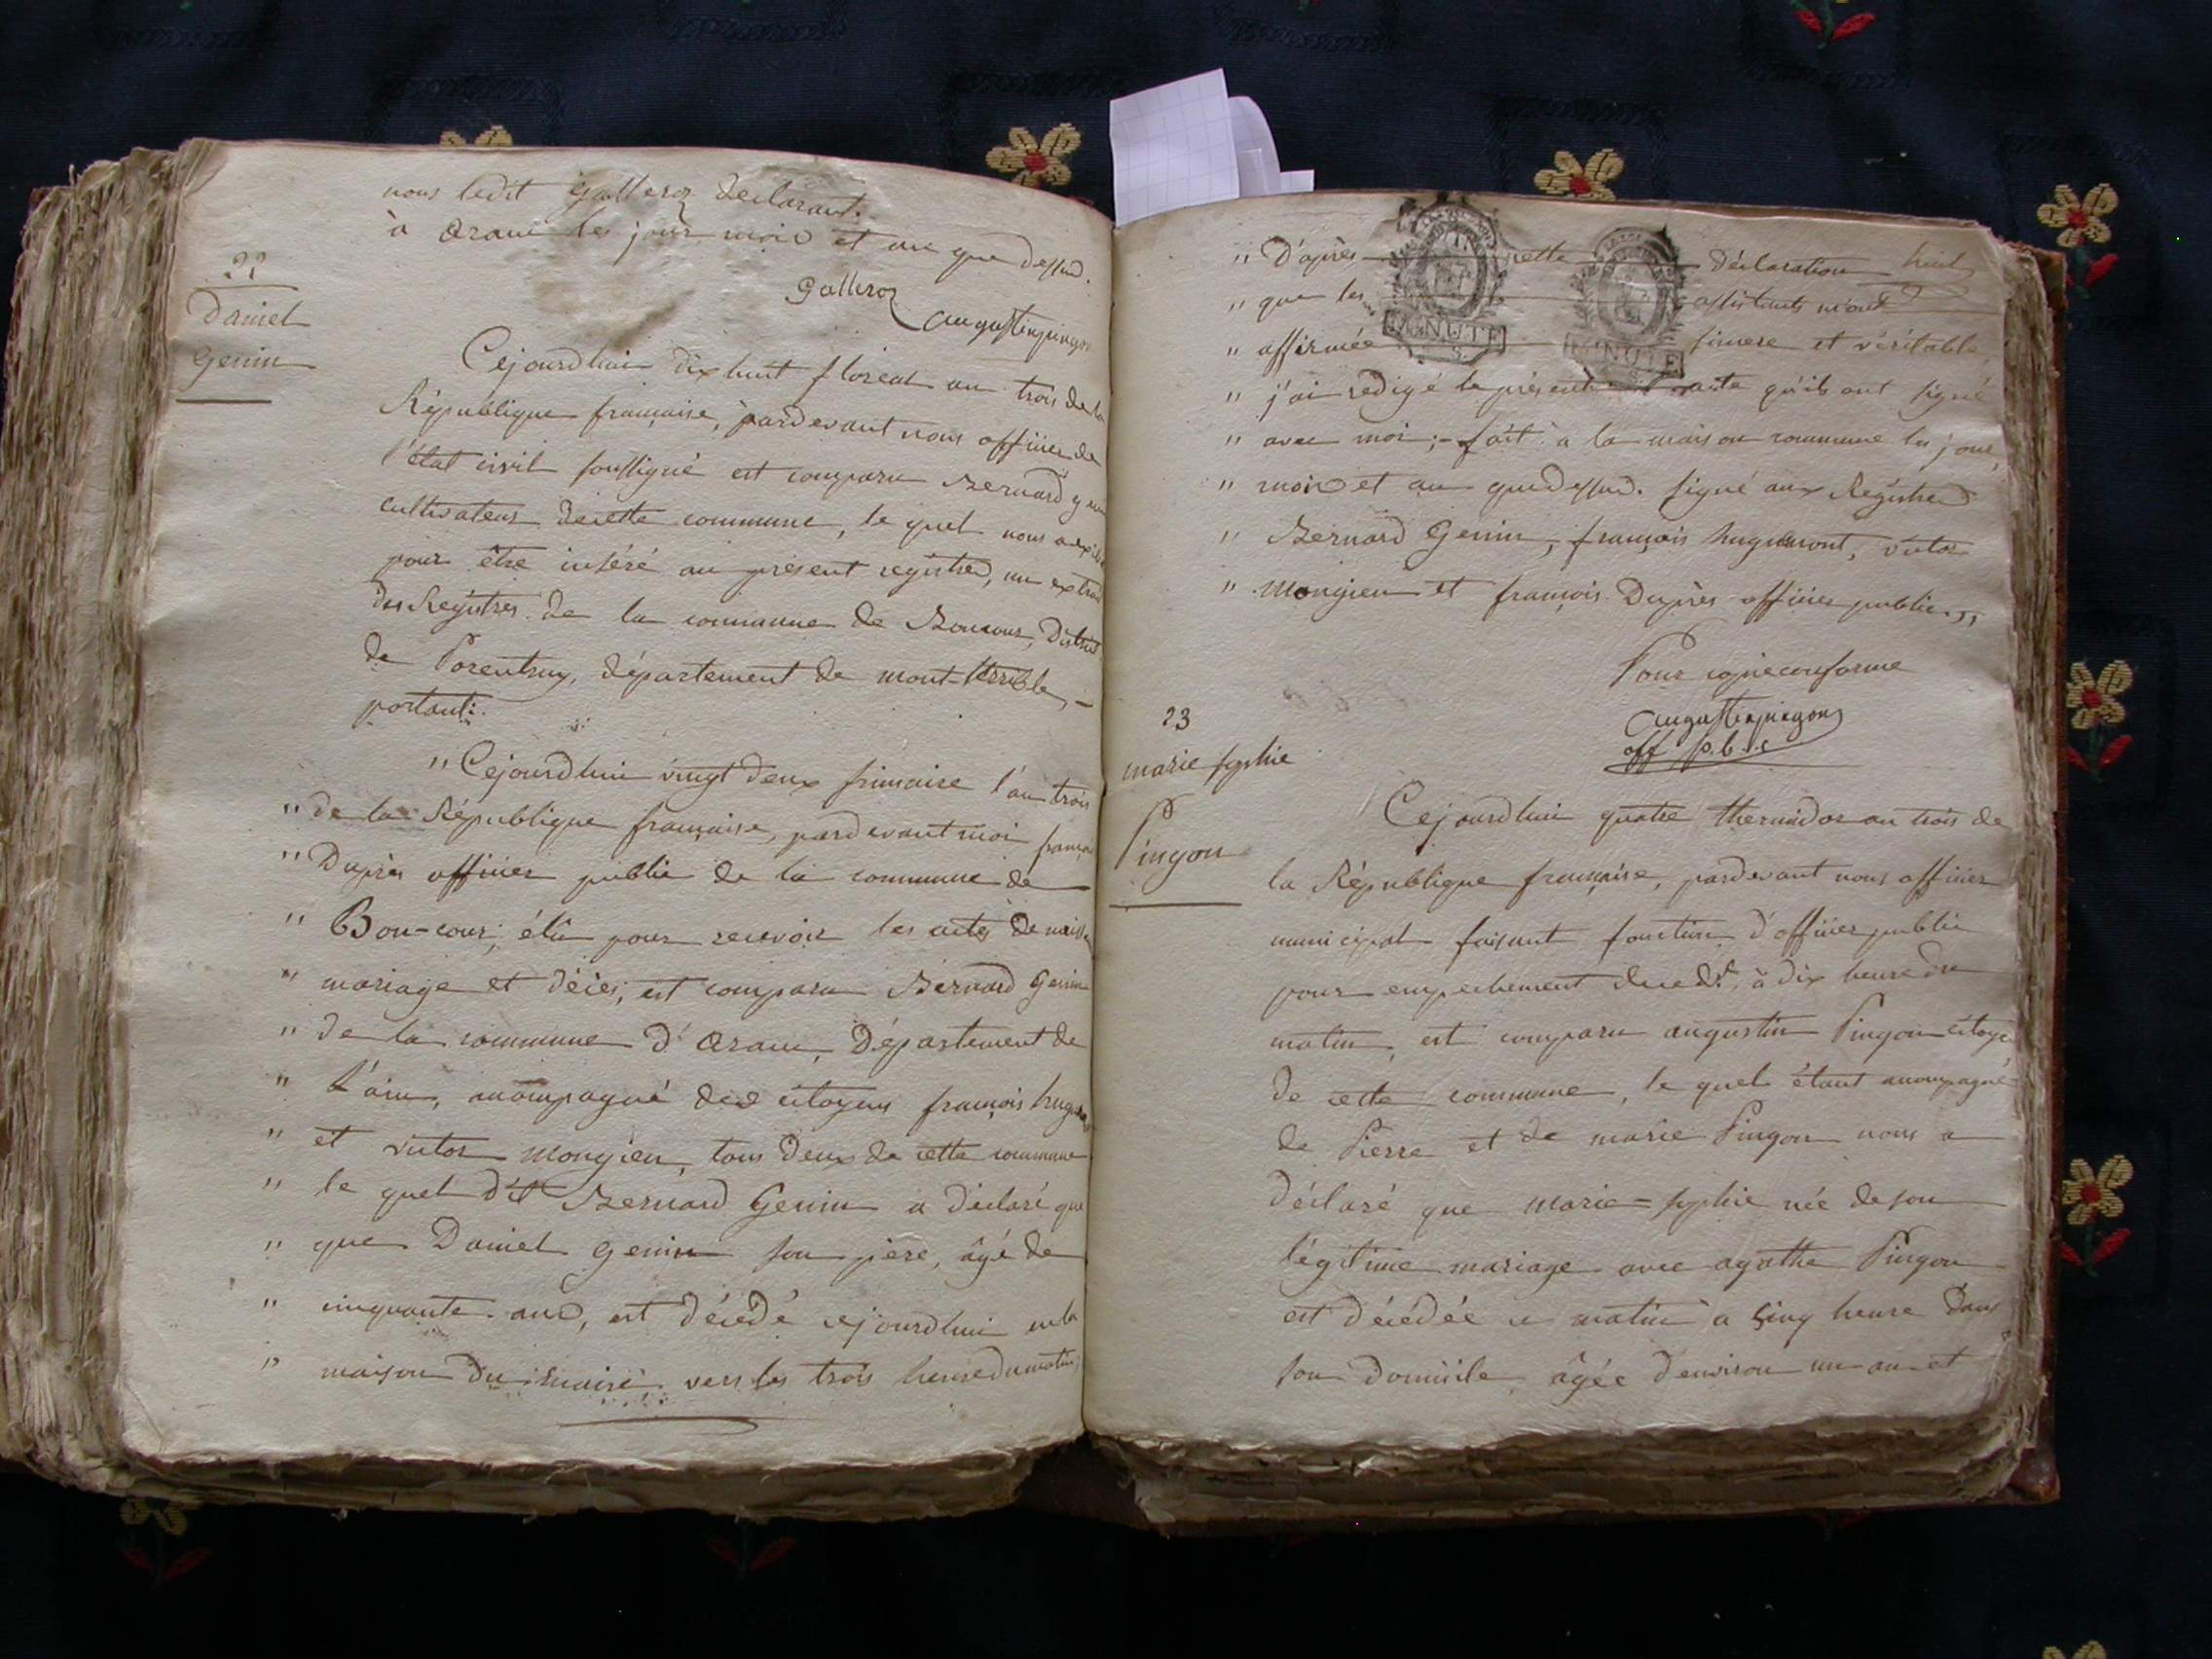 nous ledit Galleroz declarant.
à aranc les jour, mois et an que dessus.
Galleroz
augustin pingon
22
Daniel
Genin
Cejourdhui dix huit floreal an trois de la
République française, pardevant nous officier de
l'état civil soussigné est comparu Bernard genin
cultivateur de cette commune, le quel nous a exibé
pour être inséré au présent registres, un extrait
des Registres de la commune de Boncour, District
de Porentruy, département de mont-terrible,
portant:
" Cejourdhui vingt deux frimaire l'an trois
" de la République française, pardevant moi françois
" Duprès officier public de la commune de
" Bon-cour, élû pour recevoir les actes de naissance
" mariage et décès, est comparu Bernard Genin
" de la commune d'aranc, Département de
" l'ain, accompagné des citoyens françois
" et victor mongieu, tous deux de cette commune
" le quel dit Bernard Genin a déclaré que
" que Daniel Genin son père, âgé de
" cinquante ans, est décédé cejourdhui en la
" maison du maire vers les trois heures du matin
" D'après cette déclaration
" que les assistants m'ont
" affirmée sincere et véritable,
" j'ai redigé le présent acte qu'ils ont signé
" avec moi; fait à la maison commune les jour,
" mois et an que dessus. signé aux Registres
" Bernard Genin, françois , victor
" mongieu et françois Duprès officier public. "
MINUTE
MINUTE
Pour copie conforme
augustin pingon
off p.b.c
23
marie sophie
Pingon
Cejourdhui quatre thermidor an trois de
la République française, pardevant nous officier
municipal faisant fonction d'officier public
pour empechement dudt, à dix heure du
matin, est comparu augustin Pingon citoyen
de cette commune, le quel étant accompagné
de Pierre et de marie Pingon nous a
déclaré que marie=sophie née de son
légitime mariage avec agathe Pingon
est décédée ce matin à cinq heure dans
son domicile, âgée d'environ un an et